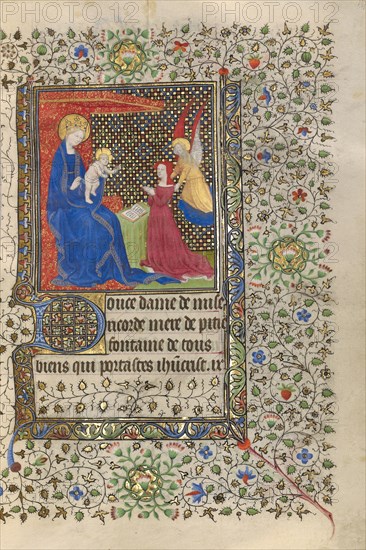 ouce dame de mise
ricorde mere de pitie
fontaine de tous
biens qui portastes ihucrist. ix